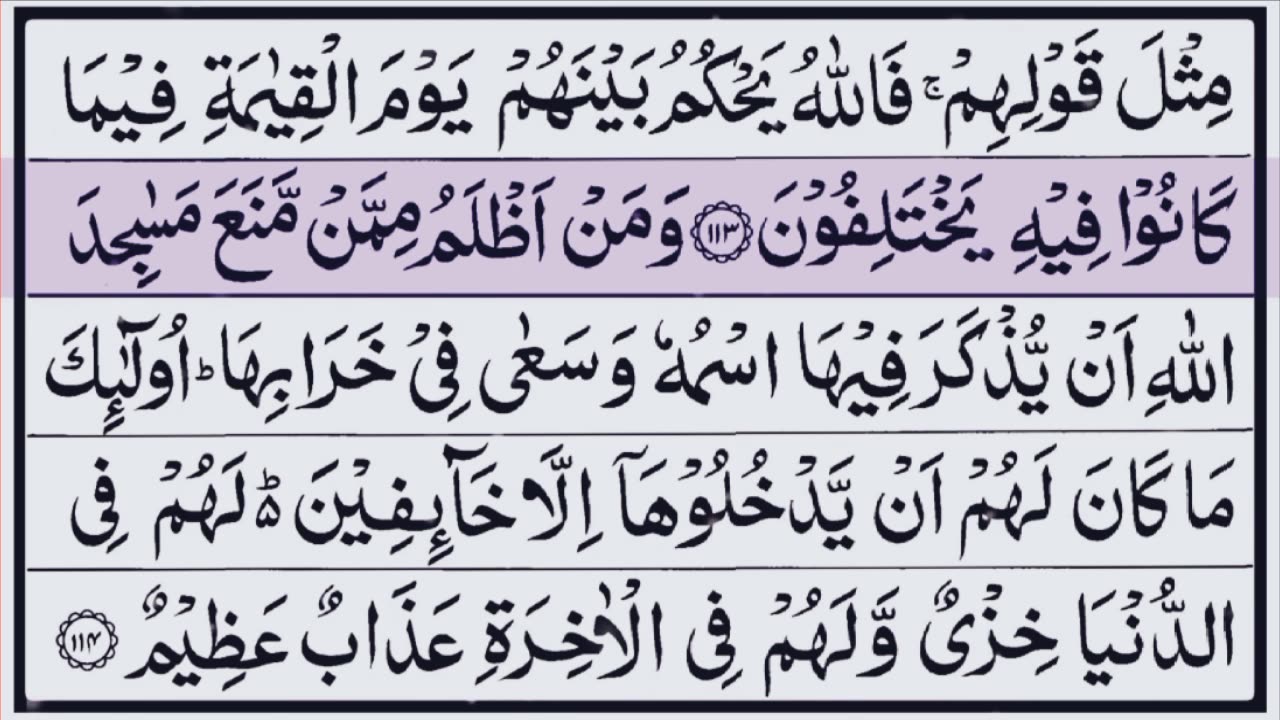 مِثْلَ قَوْلِهِمْ ۚ فَاللّٰهُ یَحْكُمُ بَیْنَهُمْ یَوْمَ الْقِیٰمَةِ فِیْمَا
كَانُوْا فِیْهِ یَخْتَلِفُوْنَ ﴿۱۱۳﴾ وَ مَنْ اَظْلَمُ مِمَّنْ مَّنَعَ مَسٰجِدَ
اللّٰهِ اَنْ یُّذْكَرَ فِیْهَا اسْمُهٗ وَ سَعٰی فِیْ خَرَابِهَا ؕ اُولٰٓىِٕكَ
مَا كَانَ لَهُمْ اَنْ یَّدْخُلُوْهَاۤ اِلَّا خَآىِٕفِیْنَ ؕ۬ لَهُمْ فِی
الدُّنْیَا خِزْیٌ وَّ لَهُمْ فِی الْاٰخِرَةِ عَذَابٌ عَظِیْمٌ ﴿۱۱۴﴾